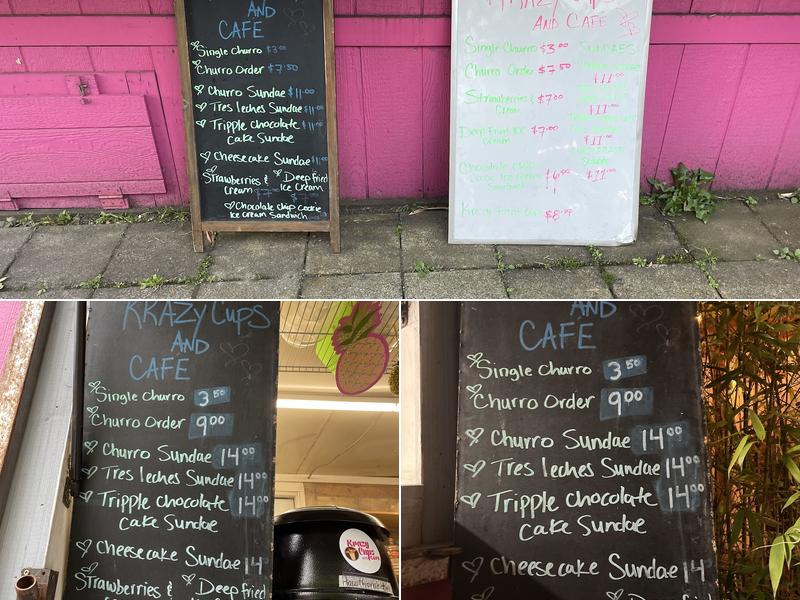 AND
CAFE
Single Churro $3.00
Churro Order $7.50
Churro Sundae $11.00
Tres leches Sundae $11.00
Tripple chocolate $11.00
cake Sundae
Cheesecake Sundae $11.00
Strawberries & Deep fried
Cream Ice Cream
Chocolate chip cookie
Ice cream Sandwich
Krazy Cups
AND CAFE
Single Churro $3.00 SUNDAES
Churro Order $7.50
$11.00
Strawberries $7.00
Cream
$11.00
Deep Fried Ice $7.00
cream
$11.00
Chocolate chip
cookie Ice cream $6.00
Sandwich
$11.00
Krazy Fruit Cup $8.00
KRAZY CUPS
AND
CAFE
Single Churro 3.50
Churro Order 9.00
Churro Sundae 14.00
Tres leches Sundae 14.00
Tripple chocolate 14.00
cake Sundae
Cheesecake Sundae 14
Strawberries & Deep fried
Krazy
Cups
AND
CAFE
Single Churro 3.50
Churro Order 9.00
Churro Sundae 14.00
Tres leches Sundae 14.00
Tripple chocolate 14.00
cake Sundae
Cheesecake Sundae 14